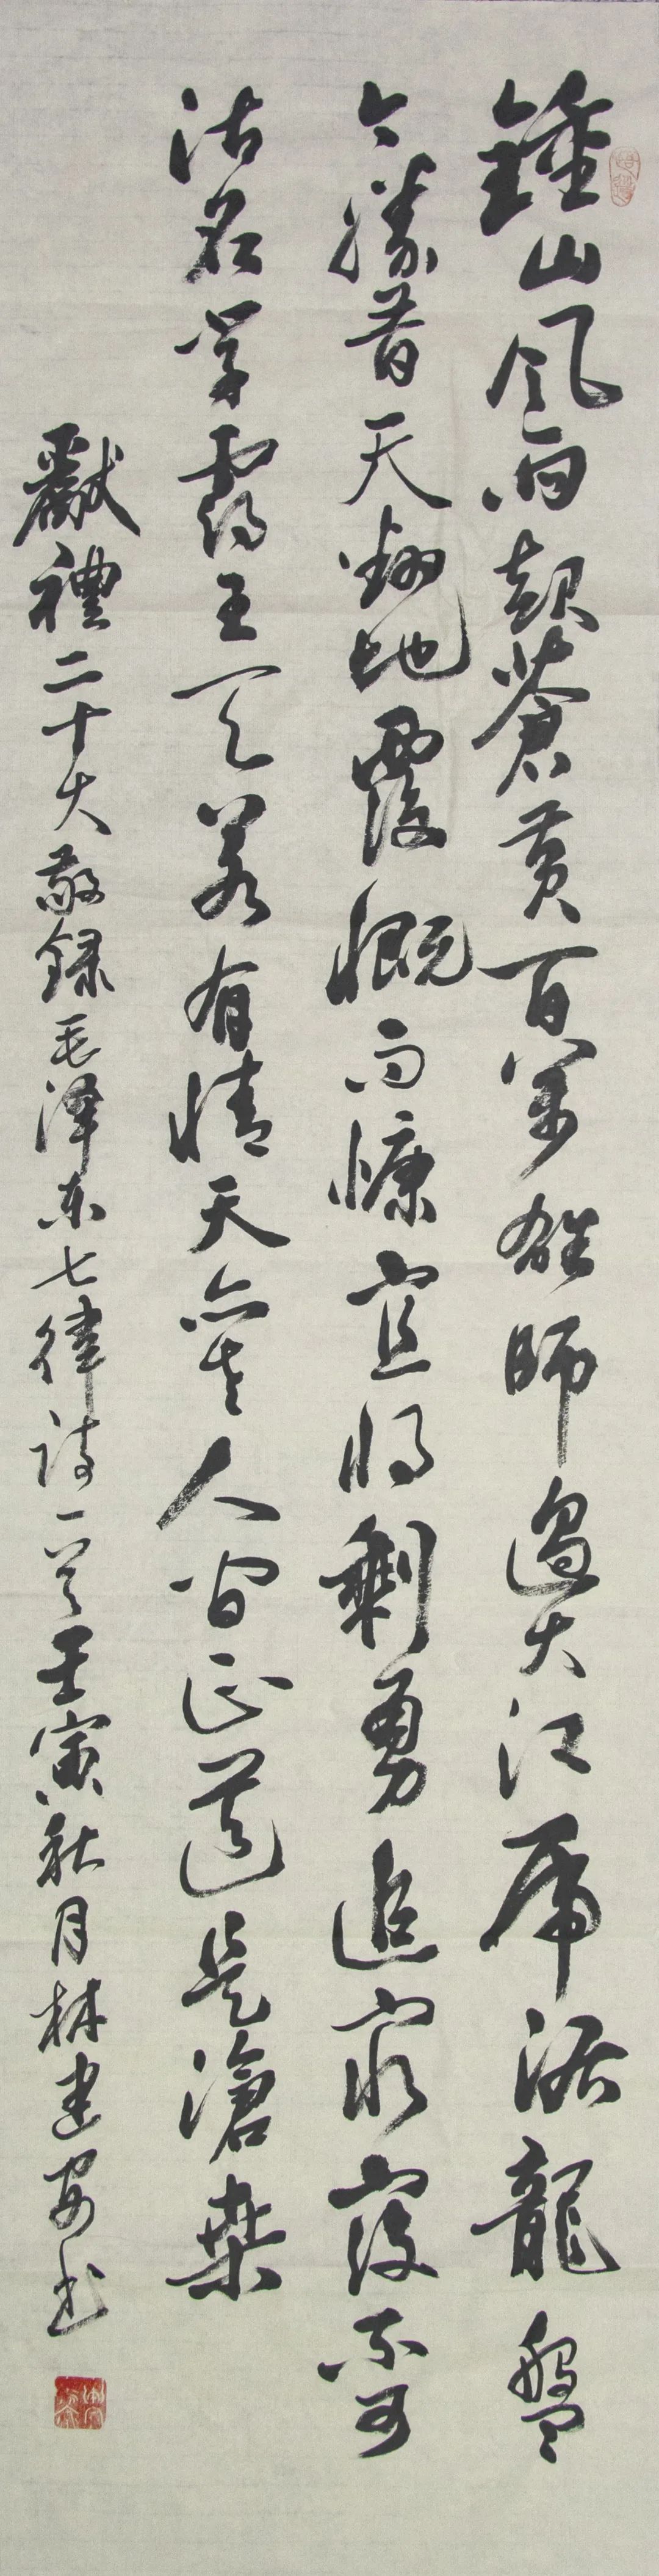 鍾山风雨起蒼黄百万雄師過大江虎踞龍盤
今勝昔天翻地覆慨而慷宜将剩勇追窮寇不可
沽名学霸王天若有情天亦老人间正道是滄桑
獻禮二十大敬録毛泽东七律诗一首壬寅秋月林建安书